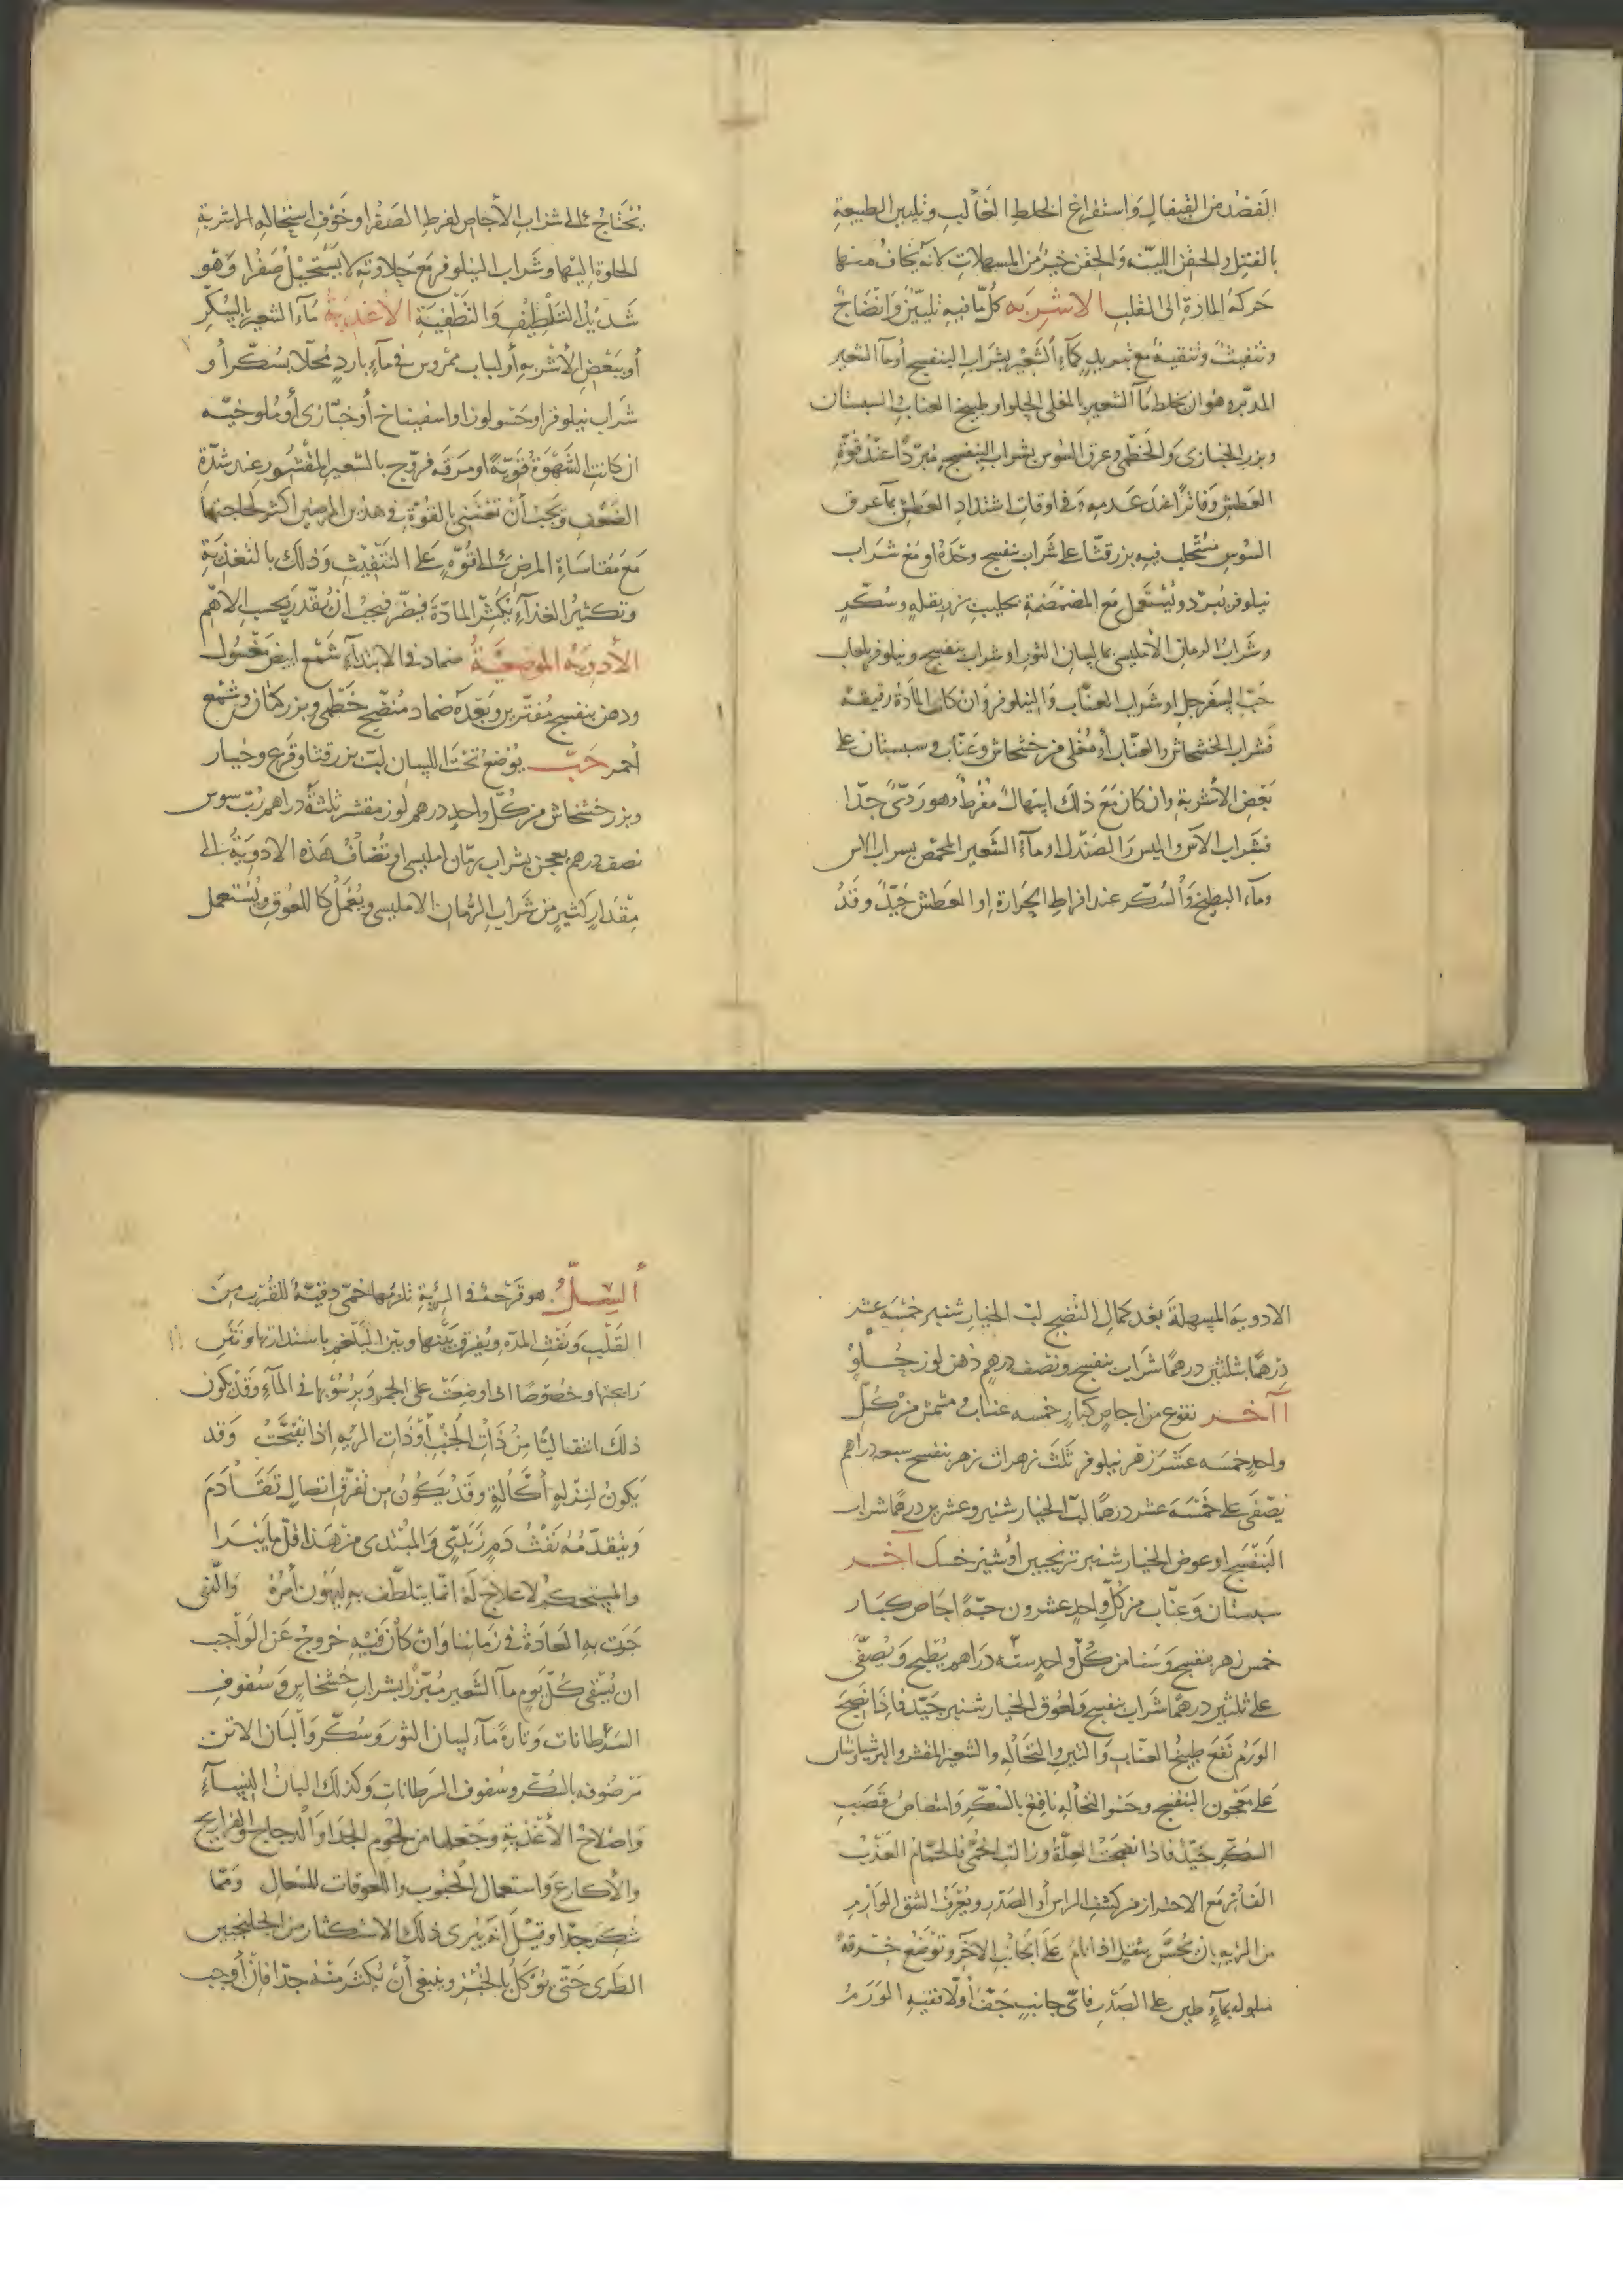 الفصد من القيفال واستفراغ الخلط الغالب وتليين الطبيعة
بالفتل والحقن اللينة والحقن خير من المسهلات لانه يخاف منها
حركة المادة الى القلب الاشربه كل ما فيه تليين وانضاج
وتنفيث وتنقية مع تبريد كماء الشعير بشراب البنفسج أو ماء الشعير
المدبر وهو ان يخلط ماء الشعير بالمغلى الحلو او بطبيخ العناب والسبستان
وبزر الخبازى والخطمى وعرق السوس بشراب البنفسج مبردا عند قوة
العطش وفاترا عند عدمه وفى اوقات اشتداد العطش بماء عرق
السوس مستحلب فيه بزر قثا على شراب بنفسج وحده او مع شراب
نيلوفر يبرد ويستعمل مع المضمضة بحليب بزر بقله وسكر
وشراب الرمان الامليسى بماء لسان الثور او شراب بنفسج ونيلوفر بلعاب
حب السفرجل او شراب العناب والنيلوفر وان كانت المادة رقيقة
فشراب الخشخاش والعناب أو مغلى من خشخاش وعناب وسبستان على
بعض الأشربة وان كان مع ذلك اسهال مفرط وهو ردئ جدا
فشراب الآس والصندل او ماء الشعير المحمص بشراب الاس
وماء البطيخ والسكر عند افراط الحرارة او العطش جيد وقد
يحتاج الى شراب الأجاص لفرط الصفرا وخوف استحالة الاشربة
الحلوة اليها وشراب النيلوفر مع حلاوته لا يستحيل صفرا وهو
شديد التلطيف والتطفية الاغذية ماء الشعير بالسكر
أو ببعض الأشربه أو لباب ممروس فى ماء بارد محلا بسكر أو
شراب نيلوفر او حسو لوز او اسفيناخ أو خبازى أو ملوخيه
ان كانت الشهوة قوية او مرقة فروج بالشعير المقشور عند شدة
الضعف ويجب أن تعتنى بالقوة فى هذين المرضين اكثر لحاجتها
مع مقاساة المرض الى قوة على التنفيث وذلك بالتغذية
وتكثير الغذاء يكثر المادة فيضر فيجب أن يقدر بحسب الاهم
الأدوية الموضعية ضماد فى الابتداء شمع ابيض مغسول
ودهن بنفسج مفترين وبعده ضماد منضج خطمى وبزر كتان وشمع
أحمر حب يوضع تحت اللسان لب بزر قثا وقرع وخيار
وبزر خشخاش من كل واحد درهم لوز مقشر ثلثة دراهم رب سوس
نصف درهم يعجن بشراب رمان امليسى او تضاف هذه الادوية الى
مقدار كثير من شراب الرمان الامليسى ويعمل كاللعوق ويستعمل
الادوية المسهلة بعد كمال النضج لب الخيار شنبر خمسه عشر
درهما بثلثين درهما شراب بنفسج ونصف درهم دهن لوز حلو
آخر نقوع من اجاص كبار خمسه عناب ومشمش من كل
واحد خمسه عشر زهر نيلوفر ثلث زهرات زهر بنفسج سبعه دراهم
يصفى على خمسة عشر درهما لب الخيار شنبر وعشرين درهما شراب
البنفسج او عوض الخيار شنبر ترنجبين أو شير خسك اخر
سبستان وعناب من كل واحد عشرون حبة اجاص كبار
خمس زهر بنفسج وسنا من كل واحد ستة دراهم يطبخ ويصفى
على ثلثين درهما شراب بنفسج ولعوق الخيار شنبر جيد فاذا نضج
الورم نفع طبيخ العناب والتين والنخالة والشعير المقشر والبرشياوشان
على معجون البنفسج وحسو النخالة نافع بالسكر وامتصاص قصب
السكر جيد فاذا نضجت العلة وزالت الحمى فالحمام العذب
الفاتر مع الاحتراز من كشف الراس أو الصدر ويعرف الشق الوارم
من الريه بان يحس بثقل اذا نام على الجانب الآخر وتوضع خرقة
مبلوله بماء وطين على الصدر فأى جانب جف أولا ففيه الورم
ألسل هو قرحة فى الرية تلزمها حمى دقية للقرب من
القلب ونفث المدة ويفرق بينها وبين البلغم باستدارتها ونتن
رايحتها وخصوصا اذا وضعت على الجمر وبرسوبها فى الماء وقد يكون
ذلك انتقاليا من ذات الجنب أو ذات الريه اذا تفتحت وقد
يكون لنزلة أكالة وقد يكون من تفرق اتصال تقادم
ويتقدمه نفث دم زبدى والمبتدى من هذا قل ما يبرا
والمستحكم لا علاج له انما يتلطف به ليهون أمره والذى
جرت به العادة فى زماننا وان كان فيه خروج عن الواجب
ان يسقى كل يوم ماء الشعير مبزرا بشراب خشخاش وسفوف
السرطانات وتارة ماء لسان الثور وسكر وألبان الاتن
مرضوفه بالسكر وسفوف السرطانات وكذلك البان النساء
واصلاح الأغذية وجعلها من لحوم الجدا والدجاج والفراريج
والأكارع واستعمال الحبوب واللعوقات للسعال ومما
شكر جدا وقيل انه يبرى ذلك الاستكثار من الجلنجبين
الطرى حتى يؤكل بالخبز وينبغى أن يكثر منه جدا فان أوجب